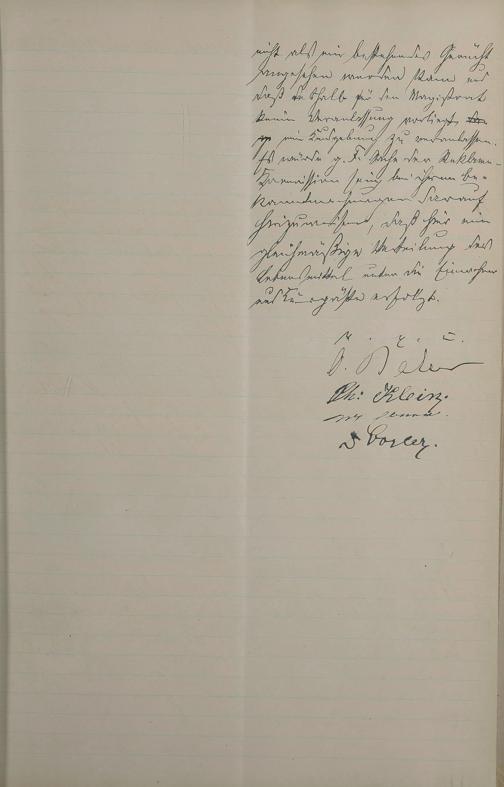 nicht als ein bestehendes Gerücht
angesehen werden kann und
daß deshalb für den Magistrat
keine Veranlassung vorliegt,
ein Kundgebung zu veranlassen.
Es würde g. F. Sache der Reklame-
Kommission sein, bei ihren Be-
kanntmachungen darauf
hinzuweisen, daß hier eine
gleichmäßige Verteilung der
Lebensmittel unter die Einwohner
und Kurgäste erfolgt.
v. g. u.
Ph: Klein.